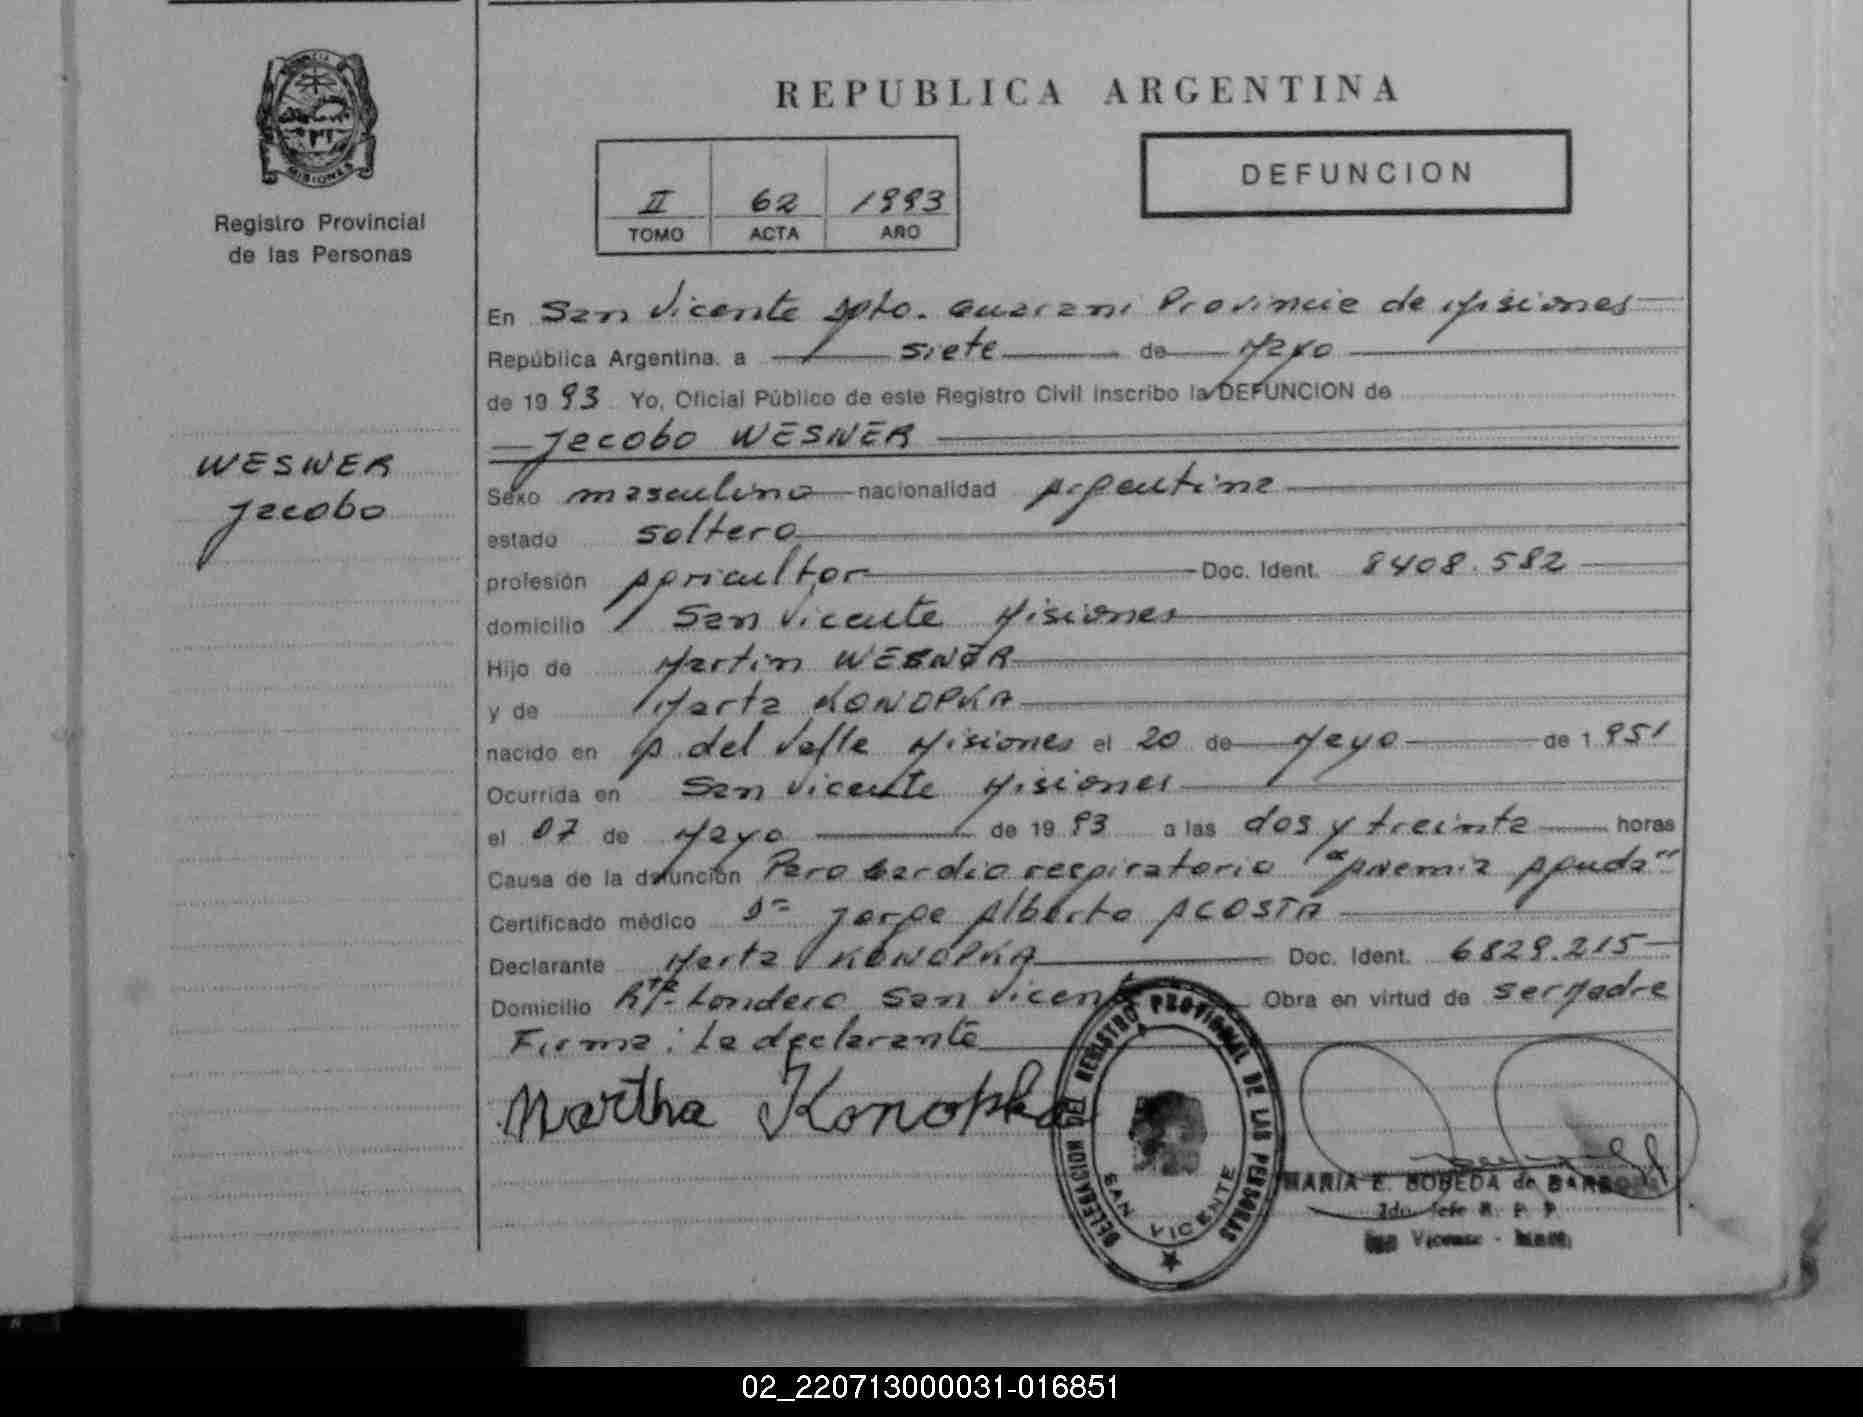 REPUBLICA ARGENTINA
MISIONES
Registro Provincial
de las Personas
II 62 1993
TOMO ACTA AÑO
DEFUNCION
En San Vicente Dpto. Guarani Provincia de Misiones
República Argentina. a siete de Mayo
de 1993 Yo, Oficial Público de este Registro Civil inscribo la DEFUNCION de
Jacobo WESNER
WESNER
Jacobo
Sexo masculino nacionalidad Argentina
estado soltero
profesión Agricultor Doc. Ident. 8408.582
domicilio San Vicente Misiones
Hijo de Martin WESNER
y de Marta KONOPKA
nacido en A. del Valle Misiones el 20 de Mayo de 1951
Ocurrida en San Vicente Misiones
el 07 de Mayo de 1993 a las dos y treinta horas
Causa de la defunción Paro cardio respiratorio "Anemia Aguda"
Certificado médico Dr Jorge Alberto ACOSTA
Declarante Marta KONOPKA Doc. Ident. 6829.215
Domicilio Londero San Vicente Obra en virtud de ser Madre
Firma: La declarante
Martha Konopka
DELEGACION DEL REGISTRO PROVICIONAL DE LAS PERSONAS
SAN VICENTE
MARIA E. BOBEDA de
2do Jefe R. P. P.
San Vicente - Mnes.
02_220713000031-016851